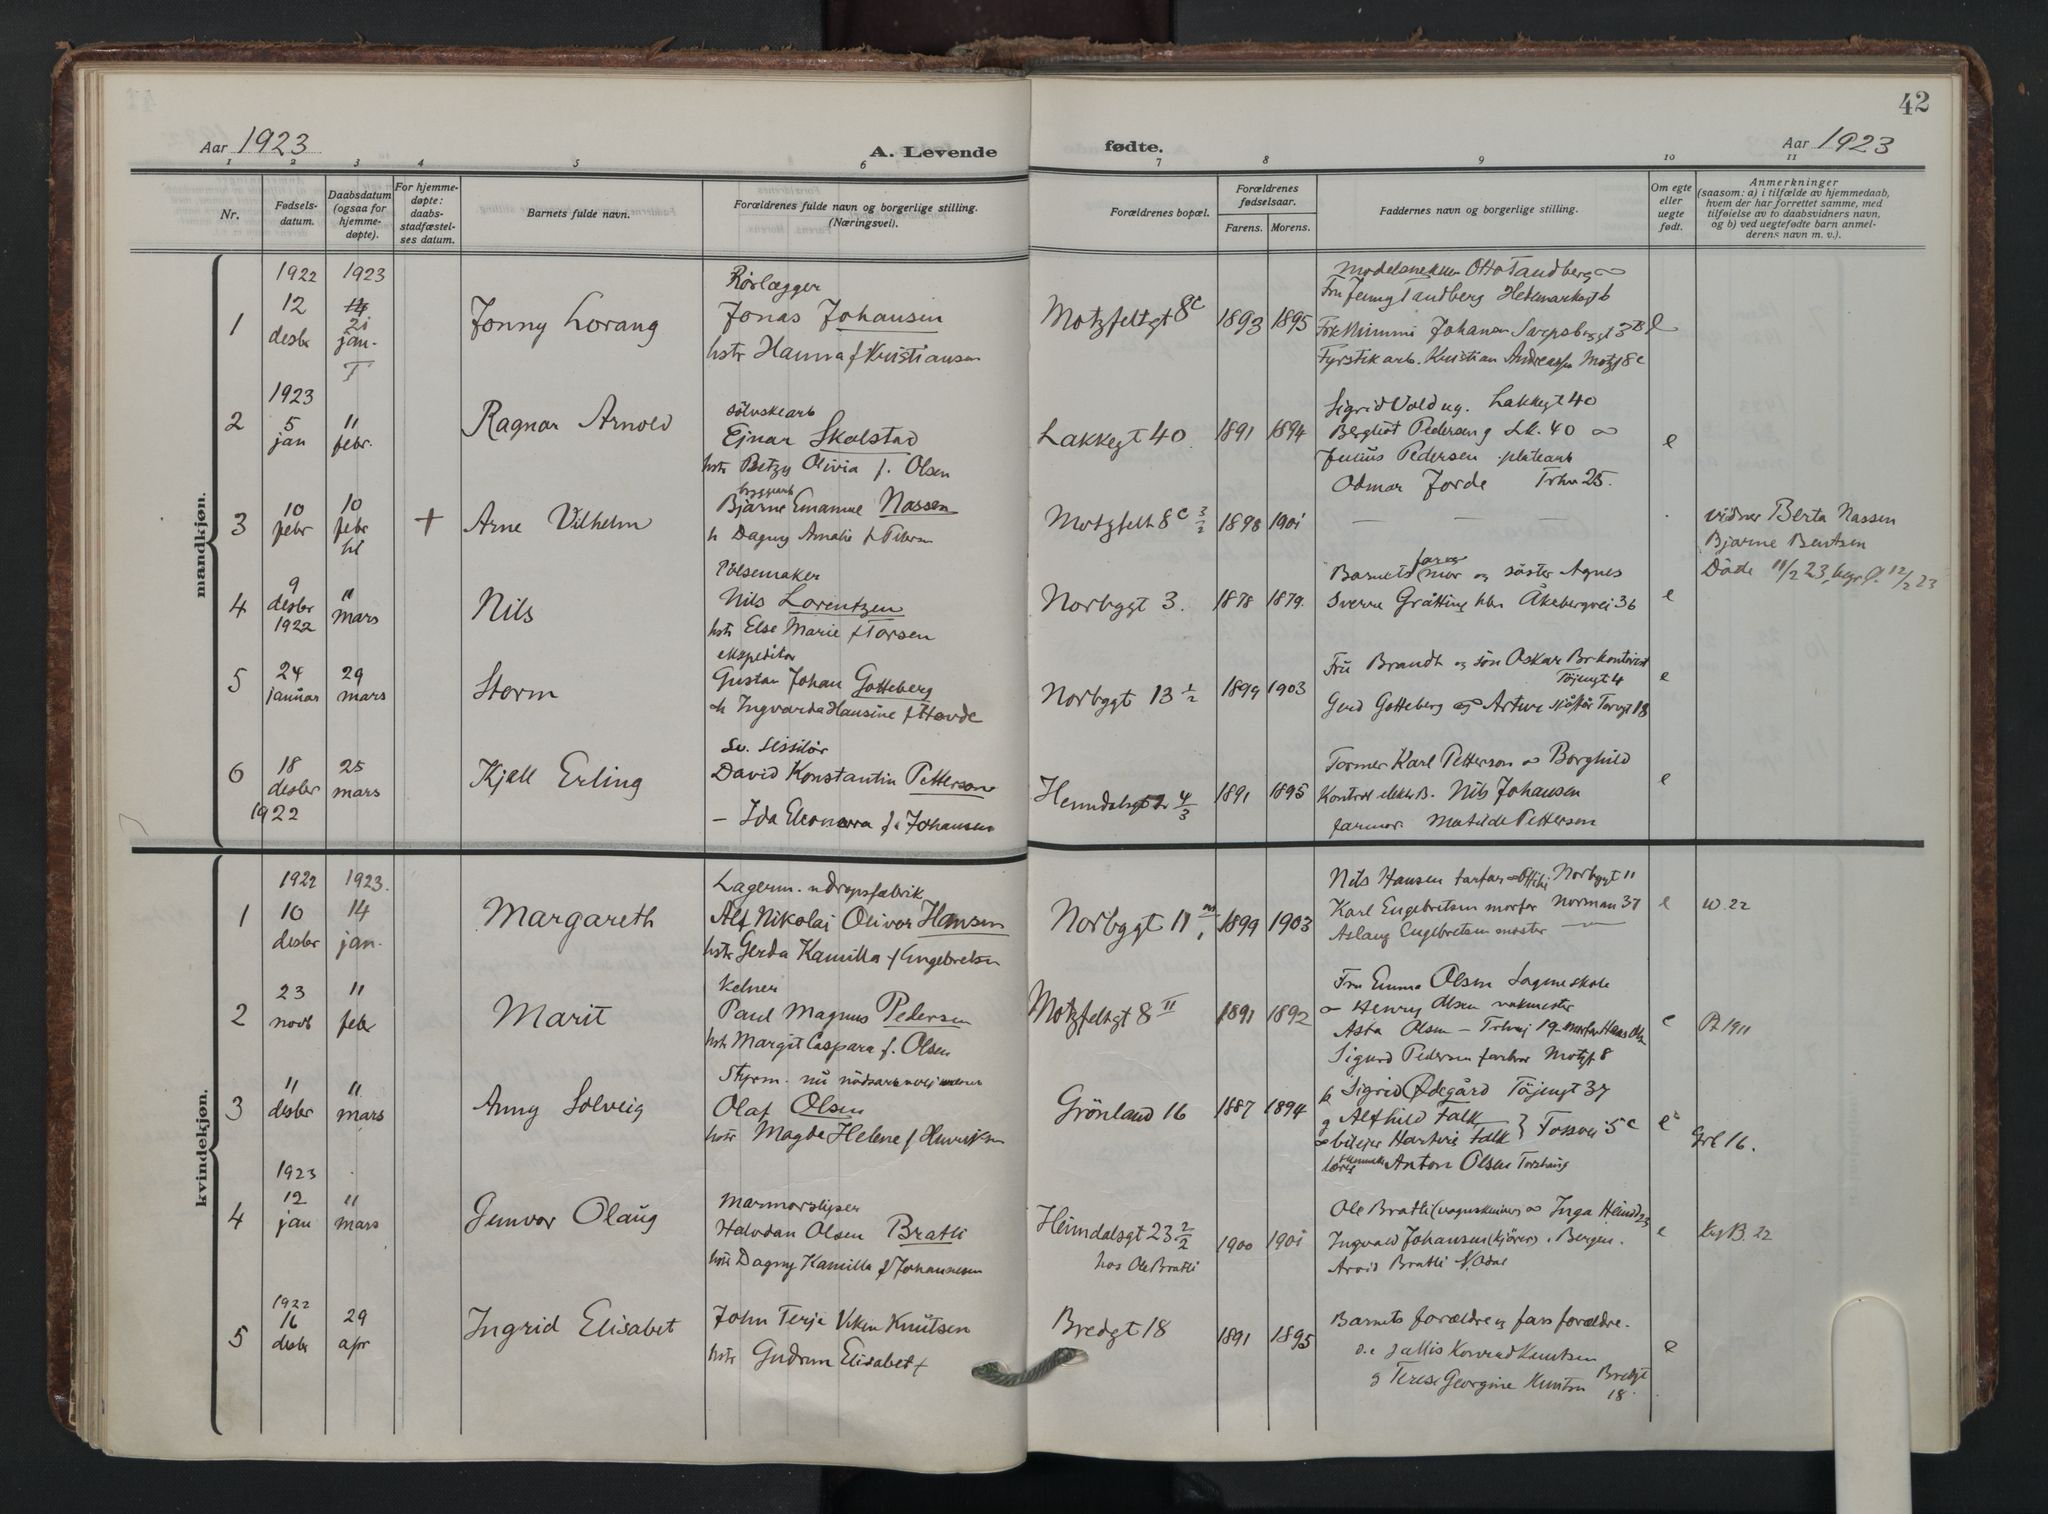 42
Aar 1923
A. Levende
fødte.
Aar 1923
1 2 3 4 5 6 7 8 9 10 11
Nr.
Fødsels-
datum.
Daabsdatum
(ogsaa for
hjemme-
døpte).
For hjemme-
døpte:
daabs-
stadfæstel-
ses datum.
Barnets fulde navn.
Forældrenes fulde navn og borgerlige stilling.
(Næringsvei).
Forældrenes bopæl.
Forældrenes
fødselsaar.
Farens. Morens.
Faddernes navn og borgerlige stilling.
Om egte
eller
uegte
født.
Anmerkninger
(saasom: a) i tilfælde av hjemmedaab,
hvem der har forrettet samme, med
tilføielse av to daabsvidners navn,
og b) ved uegtefødte barn anmel-
derens navn m. v.).
mandkjøn.
1
1922
12
desbr
1923
21
jan.
Jonny Lorang
Rørlægger
Jonas Johansen
hstr Hanna f Kristiansen
Motzfeltgt 8c
1893 1895
Otto Tandberg
Fru Jenny Tandberg Hedemarksgt 6
Mimmi Johansen
Fyrstikarb. Kristian Motzf 8c
2
1923
5
jan
11
febr.
Ragnar Arnold
Ejnar Skolstad
hstr Betzy Olivia f. Olsen
Lakkegt 40
1891 1894
Lakkegt 40
Bergliot Pedersen g Lk. 40
Julius Pedersen platearb
Odmar Jorde Trhv 25.
e
3
10
febr
10
febr
ht
+
Arne Vilhelm
Bjarne Emanuel Nassen
h Dagny Amalie f
Motzfelt 8c 3/2
1898 1901
vidner Berta Nassen
Bjarne Bentsen
Døde 11/2 23, begr 12/2 23
4
9
desbr
1922
11
mars
Nils
Pølsemaker
Nils Lorentzen
hstr Else Marie f Torsen
Norbygt 3.
1878 1879.
Barnets far mor og søster Agnes
Sverre Gråtting Åkebergvei 36
e
5
24
januar
29
mars
Storm
ekspeditør
Gustav Johan Gotteberg
h Ingvarda Hansine f Hovde
Norbygt 13 1/2
1899 1903
Fru Brandt og søn Oskar Br kontorist
Tøjengt 4
Gerd Gotteberg og Artur Torvgt 18
e
6
18
desbr
1922
25
mars
Kjell Erling
David Konstantin Petterson
– Ida Eleonora f. Johansen
4/3
1891 1895
Former Karl Petterson Borghild
Nils Johansen
farmor Matilde Petterson
e
kvindekjøn.
1
1922
10
desbr
1923.
14
jan.
Margareth
Lagerm. dropsfabrik
Alf Nikolai Oliver Hansen
hstr Gerda Kamilla f Engebretsen
Norbygt 11
1899 1903
Nils Hansen farfar Norbygt 11
Karl Engebretsen morfar Norman 37
Aslaug Engebretsen moster
e
W. 22
2
23
novb
11
febr
Marit
Kelner
Paul Magnus Pedersen
hstr Margit Caspara f. Olsen
Motzfeltgt 8 II
1891 1892
Fru Emma Olsen Sagene skole
Henry Olsen
Asta Olsen – 19 morfar
Sigurd Pedersen farbror Motzf 8
e
1911
3
11
desbr
11
mars
Anny Solveig
Styrm. nu
Olaf Olsen
hstr Magda Helene f Henriksen
Grönland 16
1887 1894
Sigrid Ødegård Töjengt 37
g Alfhild Falk
Falk } 5c
Anton Olsen
e
Grl 16.
4
1923
12
jan
11
mars
Gunvor Olaug
Marmorsliper
Halvdan Olsen Bratli
hstr Dagny Kamilla f Johannesen
Heimdalsgt 23 2/2
hos Ole Bratli
1900 1901
Ole Bratli Inga Heimd 23
Ingvald Johansen (kjører) Bergen.
Arvid Bratli
e
B. 22
5
1922
16
desbr
29
apr
Ingrid Elisabet
John Terje Viken Knutsen
hstr Gudrun Elisabet f
Bredgt 18
1891 1895
Barnets forældre og fars forældre.
Konrad Knutsen
g Terese Georgine Knutsen Bredgt
18.
e